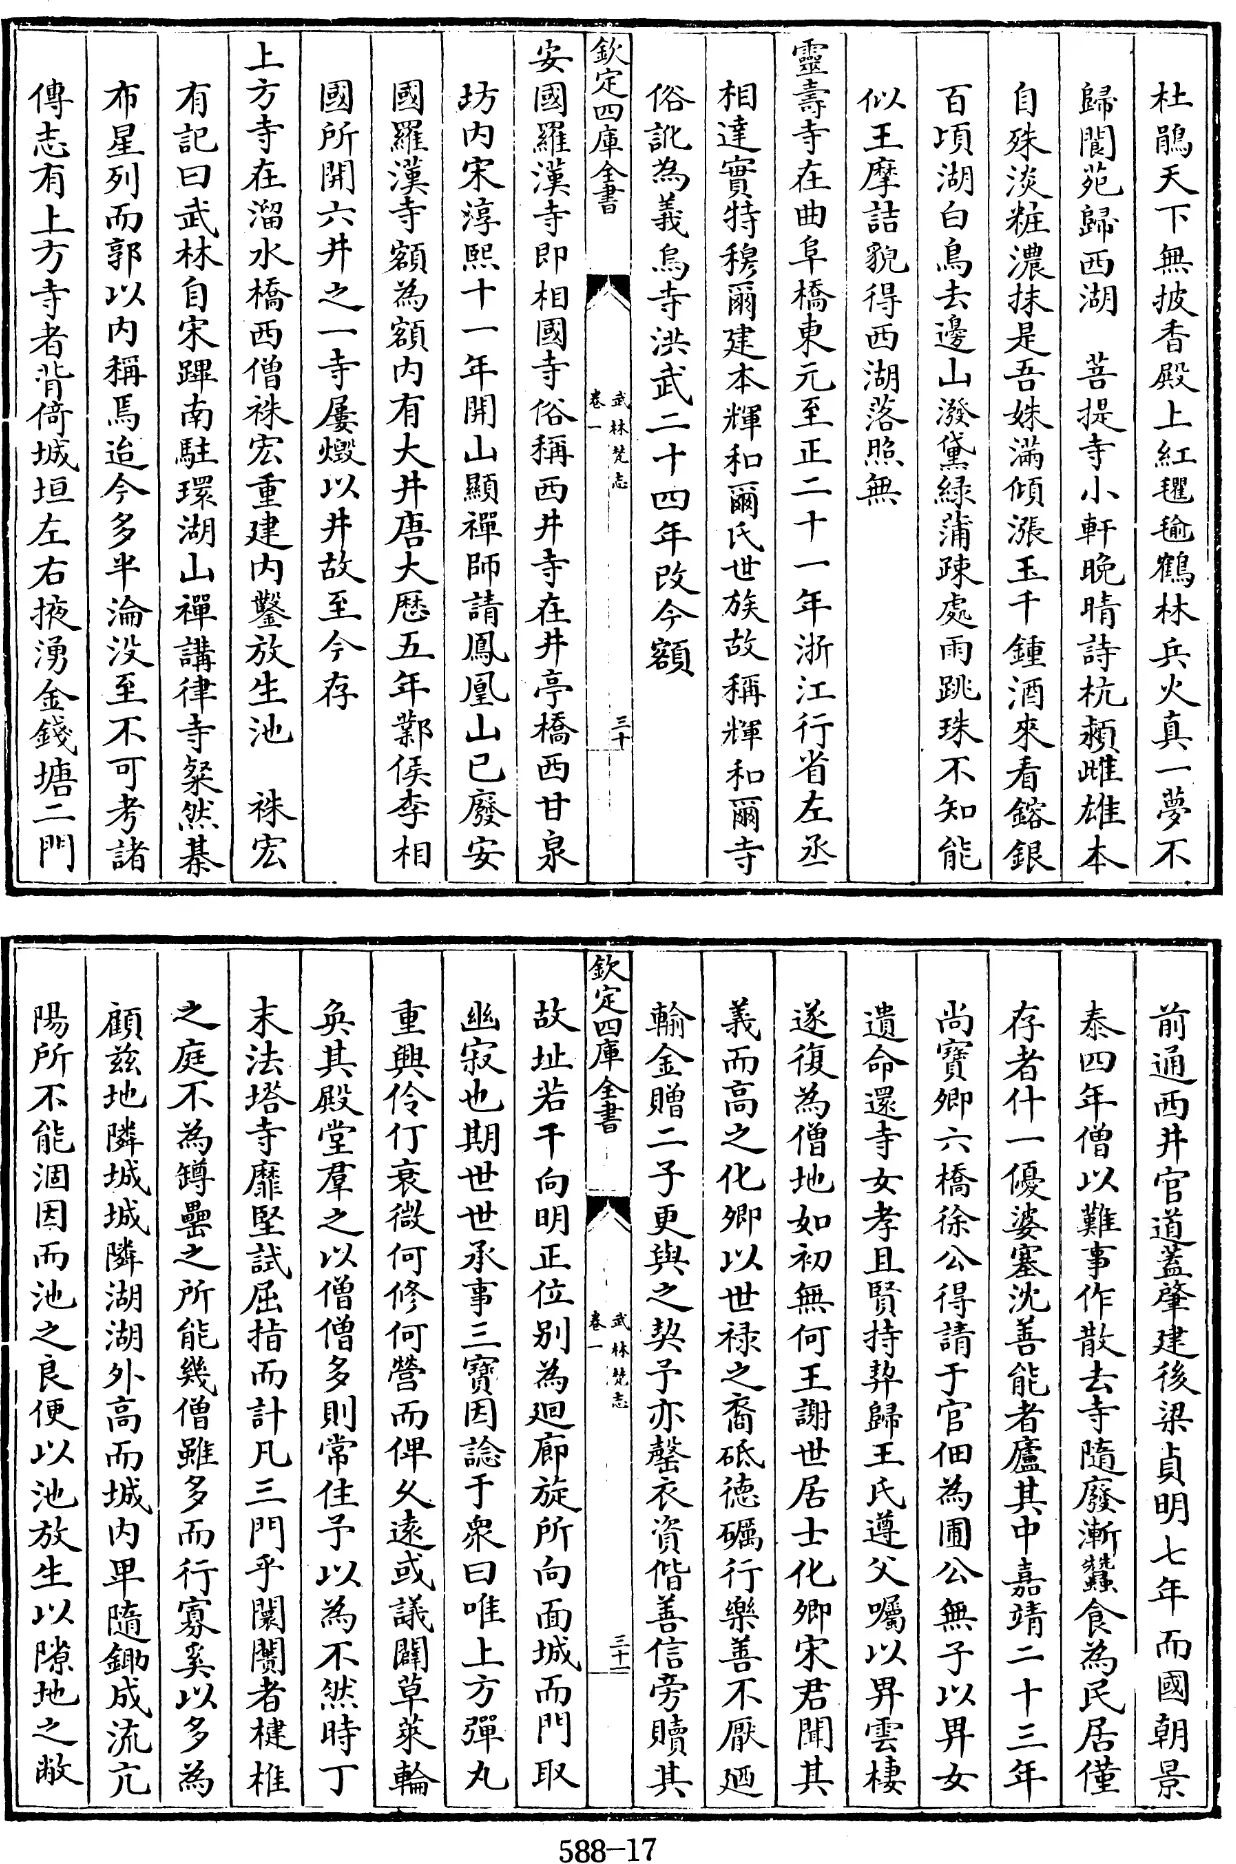 杜鵑天下無披香殿上紅𣰽毺鶴林兵火真一夢不
歸閬苑歸西湖　菩提寺小軒晚晴詩杭潁雌雄本
自殊淡粧濃抹是吾姝滿傾漲玉千鍾酒來看鎔銀
百頃湖白鳥去邊山潑黛綠蒲疎處雨跳珠不知能
似王摩詰貌得西湖落照無
靈壽寺在曲阜橋東元至正二十一年浙江行省左丞
相達實特穆爾建本輝和爾氏世族故稱輝和爾寺
俗訛為義烏寺洪武二十四年改今額
欽定四庫全書
武林梵志
卷一
三十
安國羅漢寺即相國寺俗稱西井寺在井亭橋西甘泉
坊内宋淳熙十一年開山顯禪師請鳳凰山已廢安
國羅漢寺額為額内有大井唐大厯五年鄴侯李相
國所開六井之一寺屢燬以井故至今存
上方寺在溜水橋西僧袾宏重建内鑿放生池　袾宏
有記曰武林自宋蹕南駐環湖山禪講律寺粲然棊
布星列而郭以内稱焉迨今多半淪没至不可考諸
傳志有上方寺者背倚城垣左右掖湧金錢塘二門
前通西井官道蓋肇建後梁貞明七年而國朝景
泰四年僧以難事作散去寺隨廢漸蠶食為民居僅
存者什一優婆塞沈善能者廬其中嘉靖二十三年
尚寶卿六橋徐公得請于官佃為圃公無子以畀女
遺命還寺女孝且賢持契歸王氏遵父囑以畀雲棲
遂復為僧地如初無何王謝世居士化卿宋君聞其
義而高之化卿以世禄之裔砥德礪行樂善不厭廼
輸金贈二子更與之契予亦罄衣資偕善信旁贖其
欽定四庫全書
武林梵志
卷一
三十一
故址若干向明正位别為廻廊旋所向面城而門取
幽寂也期世世承事三寶因諗于衆曰唯上方彈丸
重興伶仃衰微何修何營而俾久遠或議闢草萊輪
奂其殿堂羣之以僧僧多則常住予以為不然時丁
末法塔寺靡堅試屈指而計凡三門乎闤闠者楗椎
之庭不為罇罍之所能幾僧雖多而行寡奚以多為
顧兹地隣城城隣湖湖外高而城内卑隨鋤成流亢
陽所不能涸因而池之良便以池放生以隙地之敞
588-17